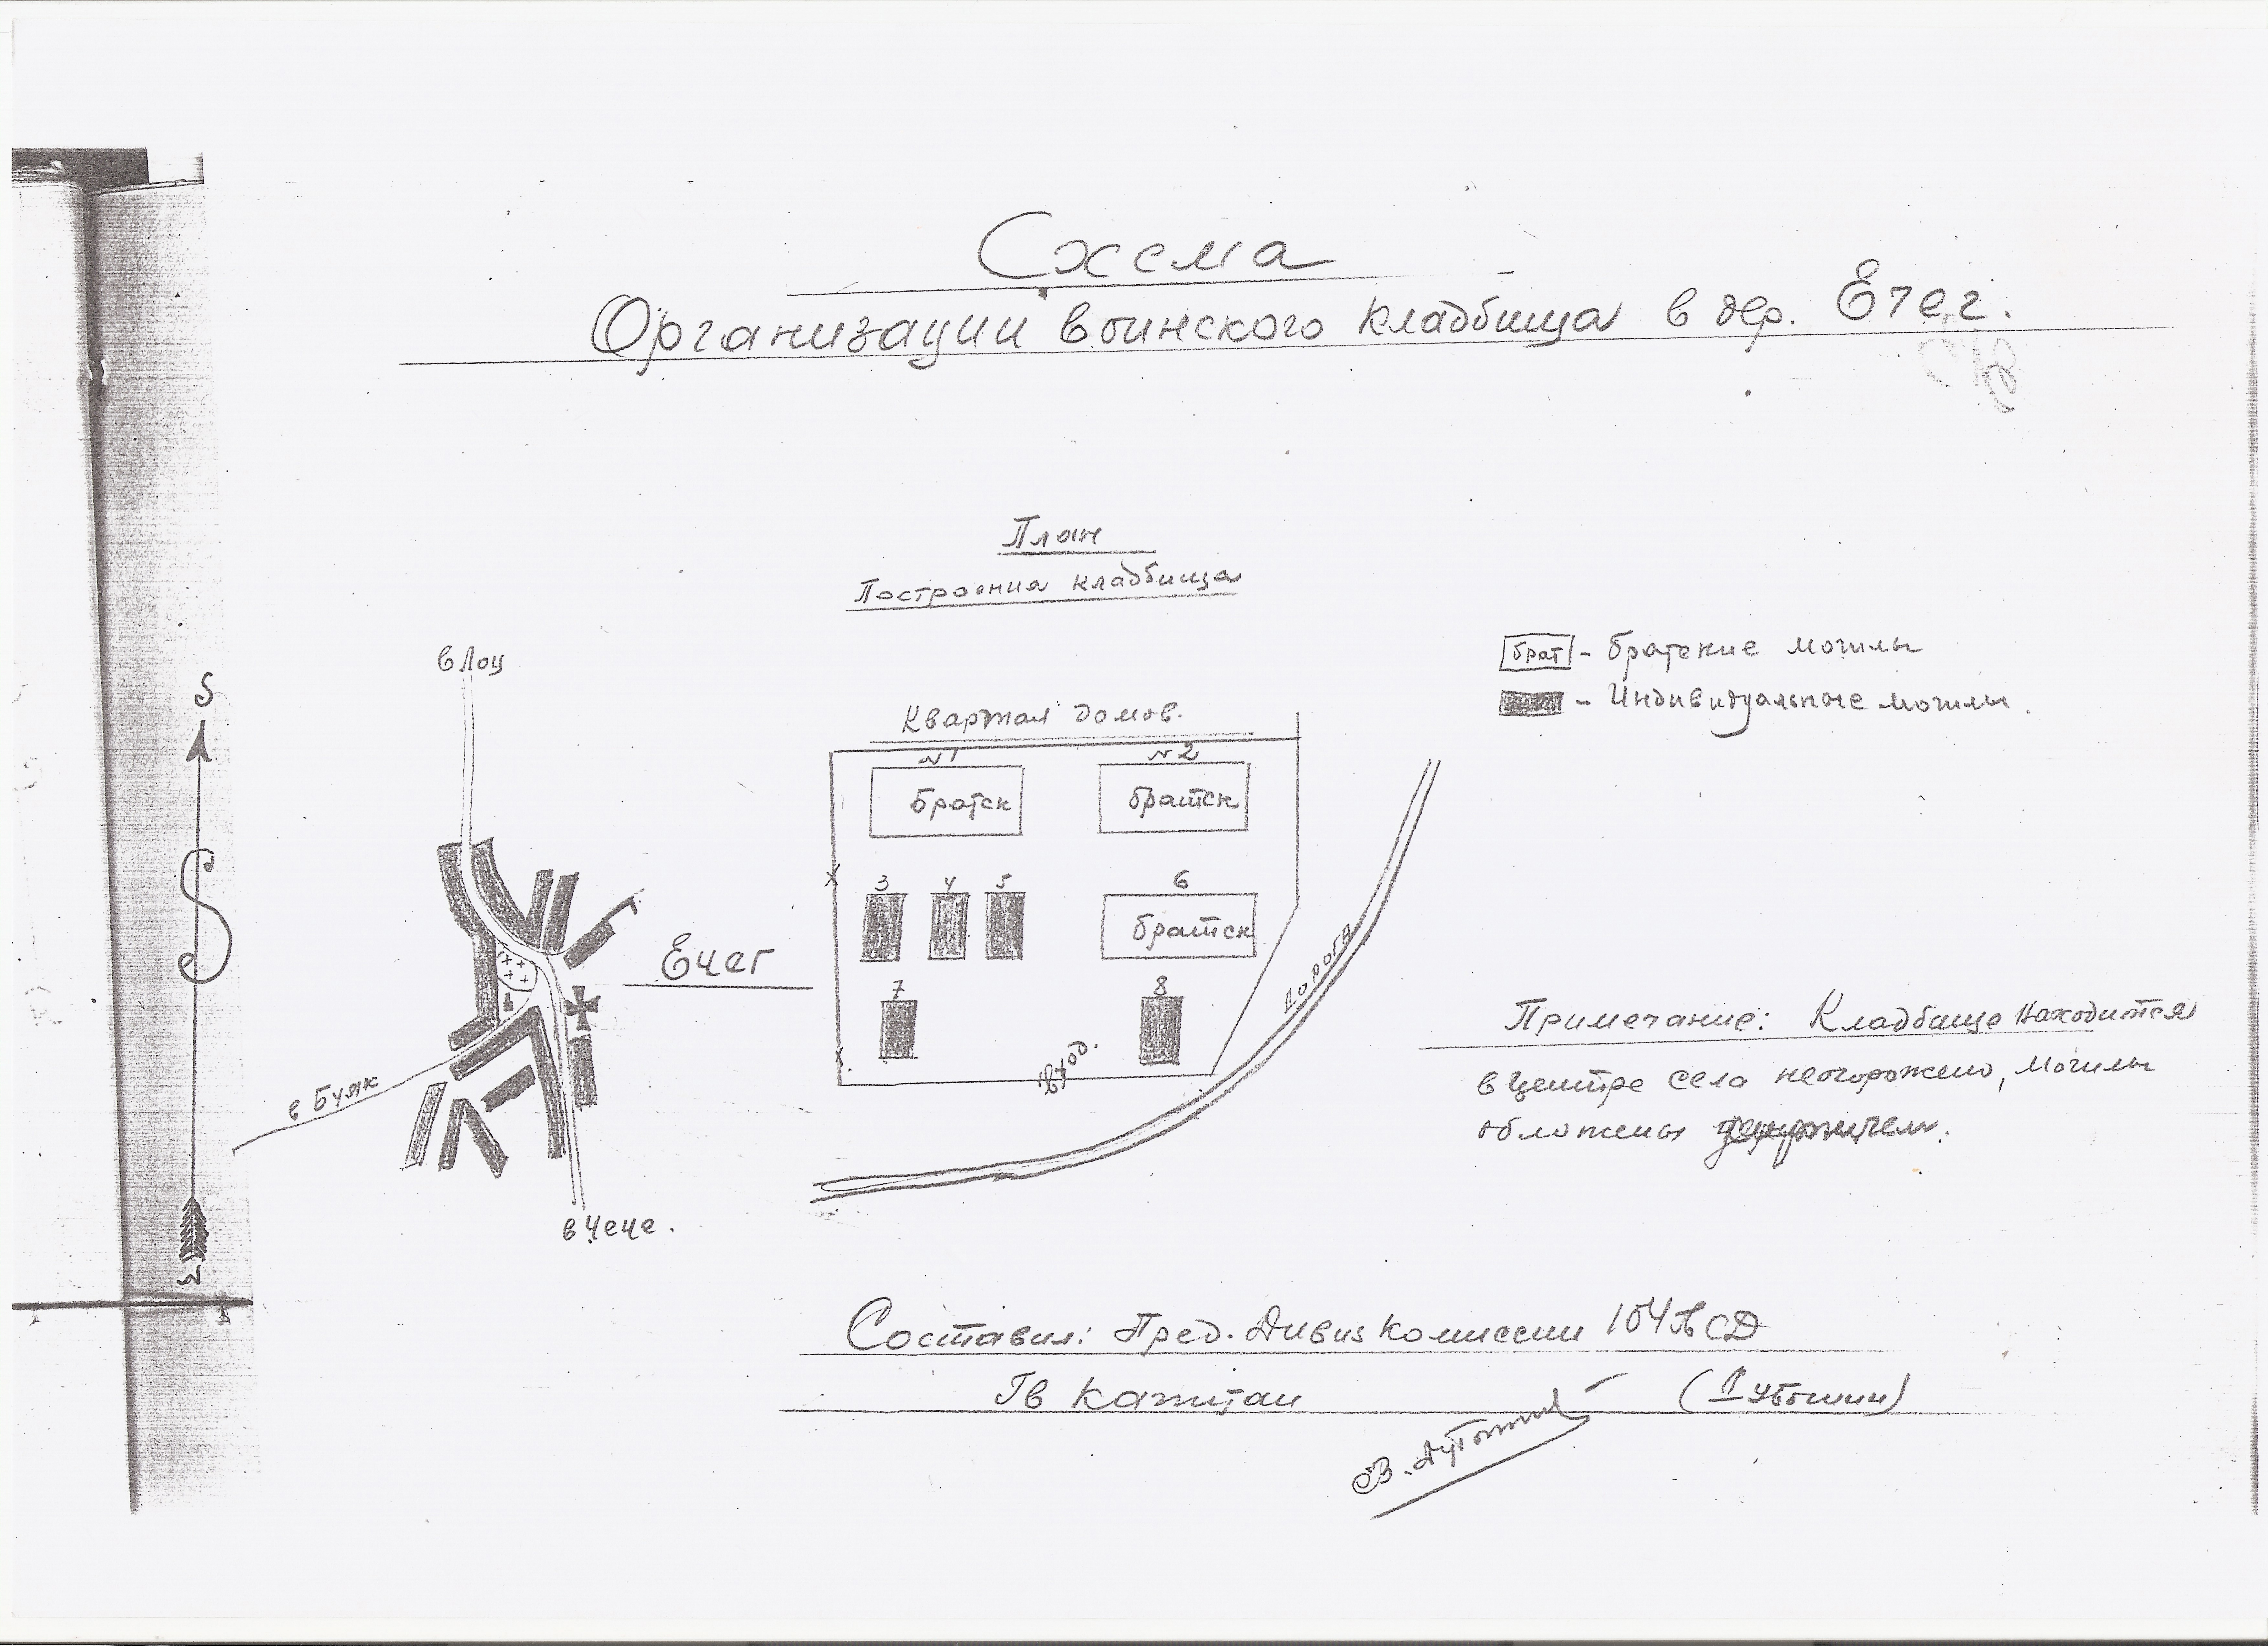 Схема
Организации воинского кладбища в дер. Ечег.
План
Построения кладбища
в Лоц
S
брат - братские могилы
- Индивидуальные могилы.
Квартал домов.
N1 N2
Братск братск
3 4 5 6
братск
Ечег
7 8
дорога
вход.
в Буяк
в Чече.
N
Примечание: Кладбище находится
в центре села неогорожено, могилы
обложены
Составил: Пред. Дивиз комиссии 104 СД
Гв капитан (Дубошин)